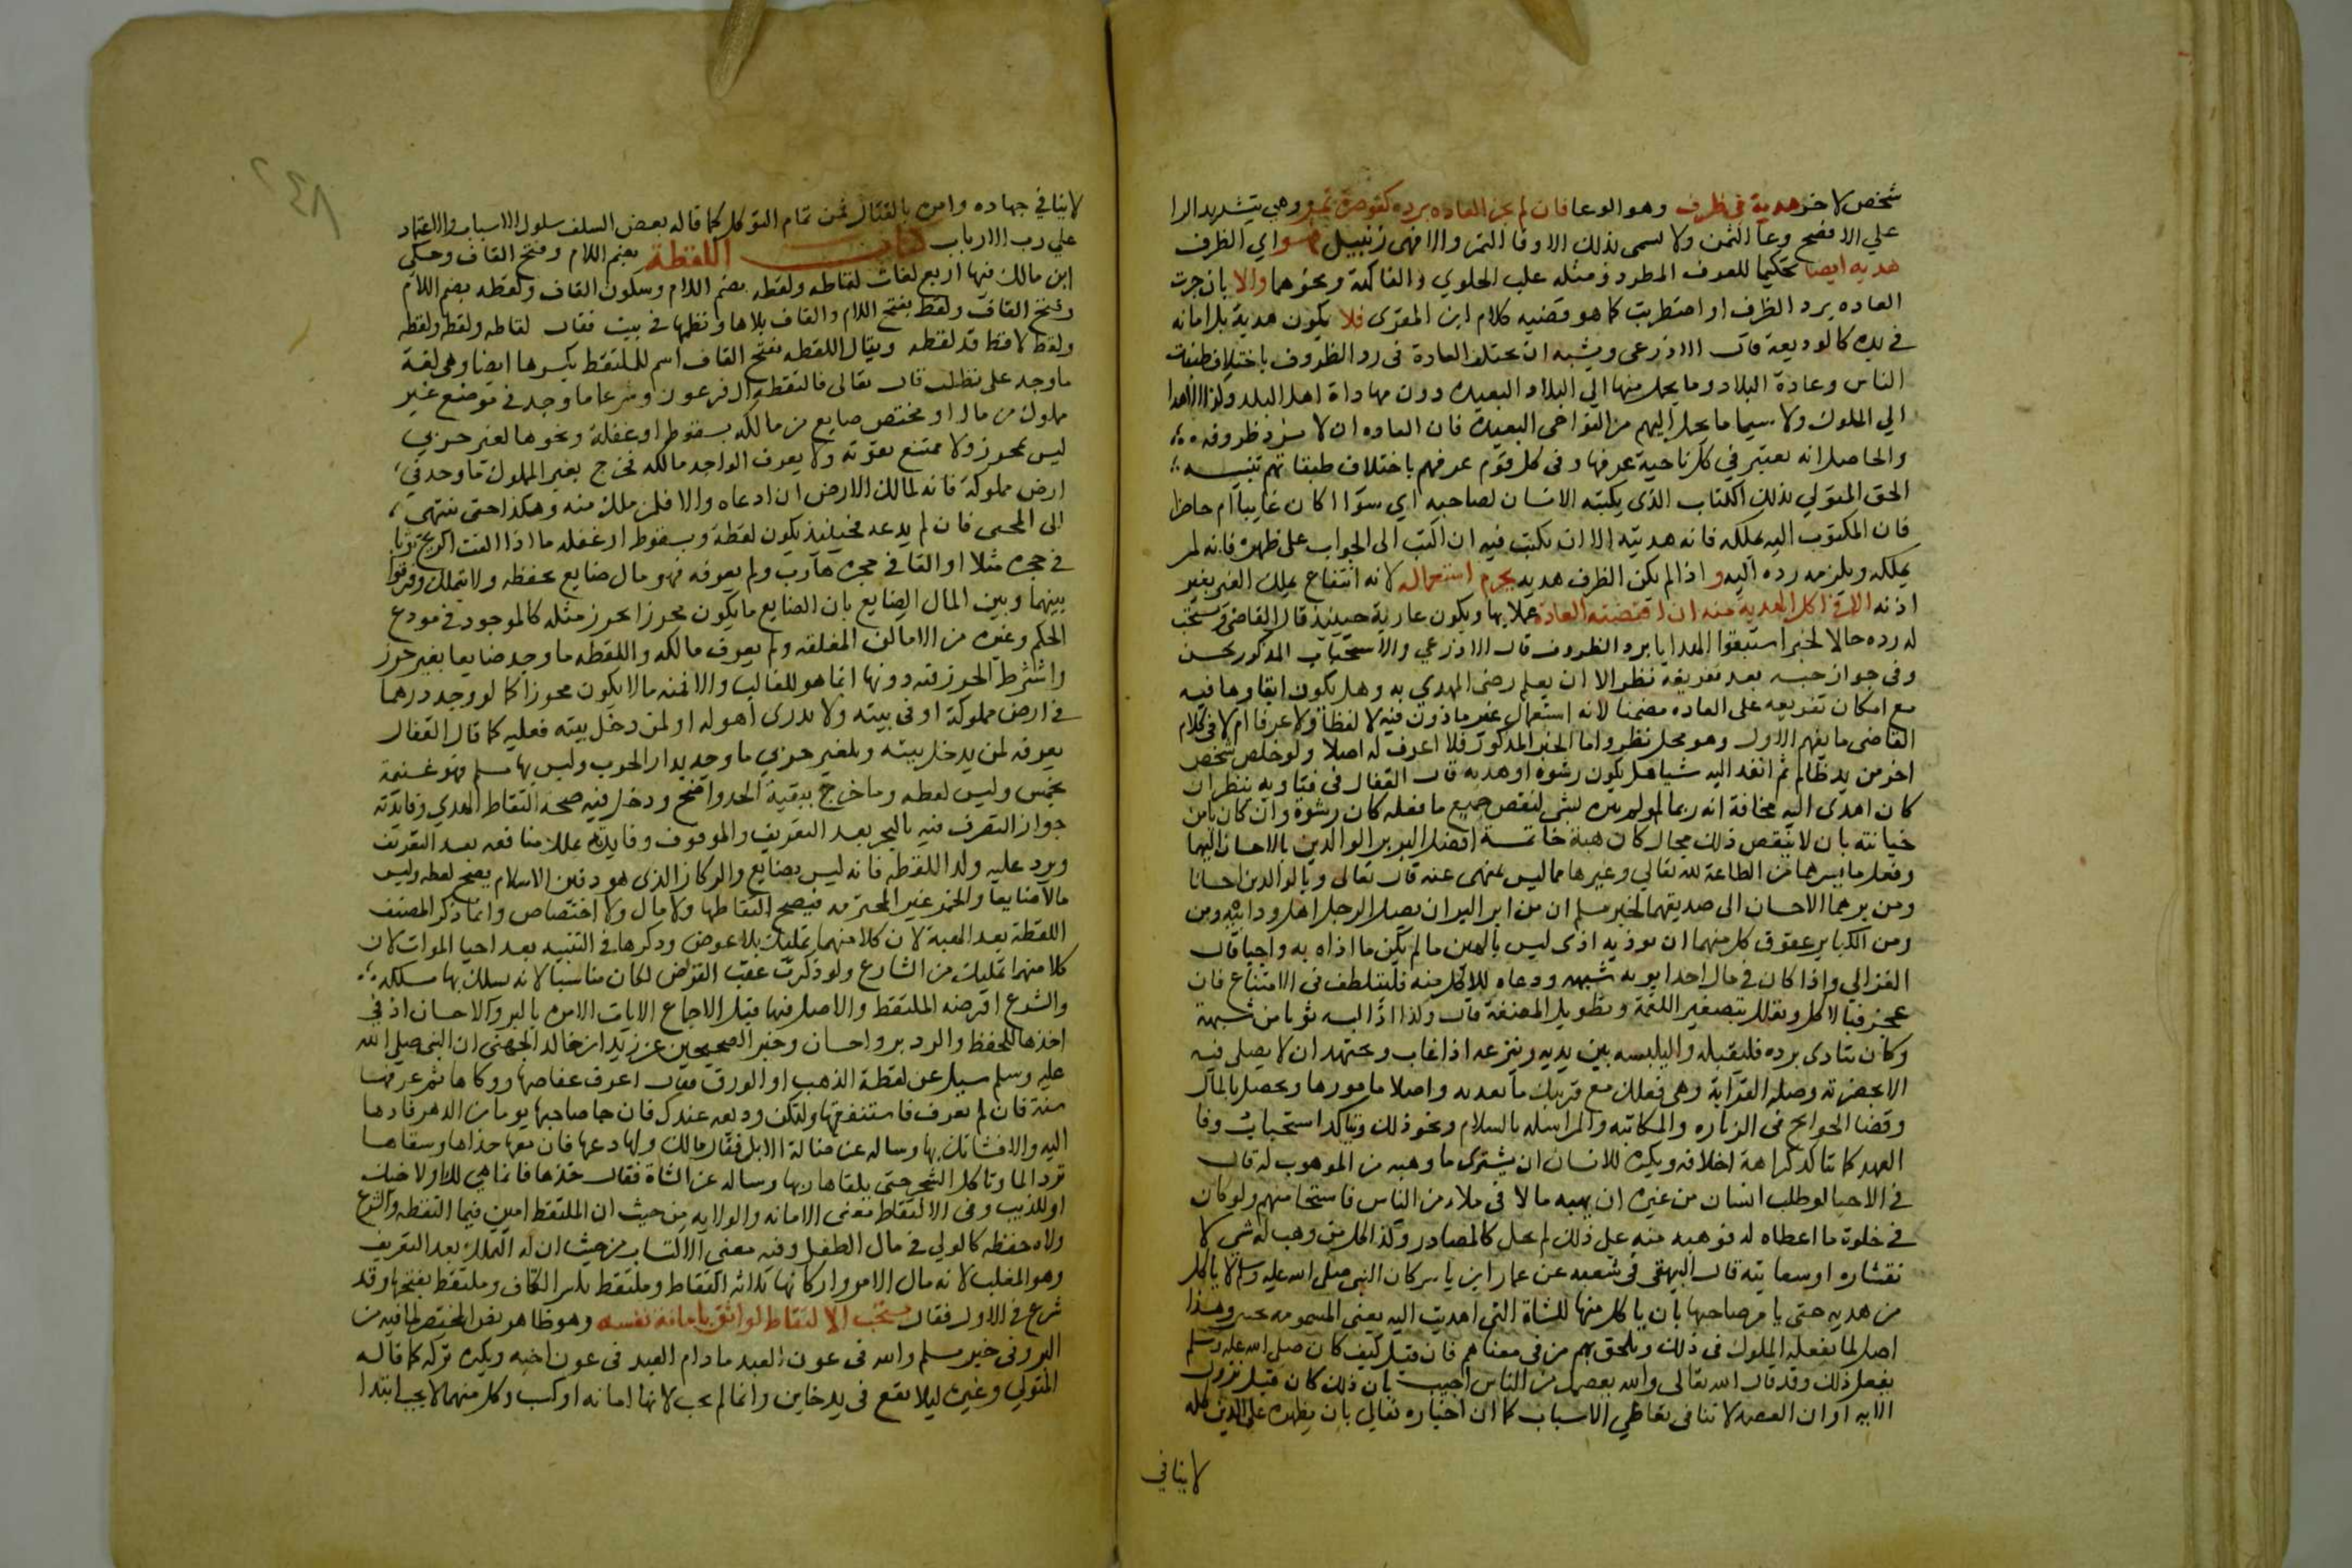 شخص لاخر هدية في ظرف وهو الوعا فان لم تجر العاده برده كقوصرة تمر وهي بتشديد الرا
علي الافصح وعا الثمن ولا تسمى بذلك الا وفا التمر والا فهى زنبيل فهو اي الظرف
هديه ايضا تحكيما للعرف المطرد ومثله علب الحلوي والفاكهة ونحوهما والا بان جرت
العاده برد الظرف او اضطربت كما هو قضيه كلام ابن المقرى فلا يكون هدية بل امانه
في يده كالوديعة قال الاذرعى ويشبه ان يختلف العادة فى رد الظروف باختلاف طبقات
الناس وعادة البلاد وما يحمل منها الي البلاد البعيده دون مهاداة اهل البلد وكذا الاهدا
الي الملوك ولا سيما ما يحمل اليهم من النواحى البعيدة فان العاده ان لا يرد ظروفه
والحاصل انه يعتبر في كل ناحية عرفها وفى كل قوم عرفهم باختلاف طبقاتهم تنبيه
الحق المتولي بذلك الكتاب الذى يكتبه الانسان لصاحبه اي سوآ اكان غايبا ام حاضرا
فان المكتوب اليه يملكه فانه هديته الا ان يكتب فيه ان اكتب الى الجواب على ظهره فانه لم
يملكه ويلزمه رده اليه واذا لم يكن الظرف هديه يحرم استعماله لانه انتفاع بملك الغير بغير
اذنه الا في اكل الهدية منه ان اقتضته العادة عملا بها ويكون عارية حينيذ قال القاضى ويستحب
له رده حالا لخبر استبقوا الهدايا برد الظروف قال الاذرعي والاستحباب المذكور حسن
وفى جواز حبسه بعد تفريغه نظر الا ان يعلم رضى المهدي به وهل يكون ابقاوها فيه
مع امكان تفريغه على العاده مضمنا لانه استعمال غير ماذون فيه لا لفظا ولا عرفا ام لا فى كلام
القاضى ما يفهم الاول وهو محل نظر واما الخبر المذكور فلا اعرف له اصلا ولو خلص شخص
اخر من يد ظالم ثم انفذ اليه شيا هل يكون رشوه او هديه قال القفال فى فتاويه ينظر ان
كان اهدى اليه مخافة انه ربما لو لم يبره بشى لنقص جميع ما فعله كان رشوة وان كان يامن
خيانته بان لا ينقص ذلك بحال كان هبة خاتمة افضل البر بر الوالدين بالاحسان اليهما
وفعل ما يسرهما من الطاعة لله تعالي وغيرها مما ليس بمنهى عنه قال تعالى وبالوالدين احسانا
ومن برهما الاحسان الى صديقهما لخبر مسلم ان من ابر البر ان يصل الرجل اهل ود ابيه ومن
ومن الكباير عقوق كل منهما ان يوذيه اذى ليس بالهين ما لم يكن ما اذاه به واجبا قال
الغزالي واذا كان في مال احد ابويه شبهه ودعاه للاكل منه فليتلطف فى الامتناع فان
عجز فياكل ويقلل بتصغير اللقمة وتطويل المضغة قال وكذا اذا البسه ثوبا من شبهة
وكان يتاذى برده فليقبله واليلبسه بين يديه وينزعه اذا غاب ويجتهد ان لا يصلى فيه
الا بحضرته وصله القرابة وهى فعلك مع قريبك ما تعد به واصلا مامور بها وتحصل بالمال
وقضا الحوايج فى الزياره والمكاتبه والمراسله بالسلام ونحو ذلك ويتاكد استحباب وفا
العهد كما يتاكد كراهة اخلافه ويكره للانسان ان يشترى ما وهبه من الموهوب له قال
في الاحيا لو طلب انسان من غيره ان يهبه مالا فى ملاء من الناس فاستحا منهم ولو كان
في خلوة ما اعطاه له فوهبه منه على ذلك لم يحل كالمصادر وكذا كل من وهب له شى لا
تقشاره اوسعايته قال البيهقى فى شعبه عن عمار ابن ياسر كان النبى صلى الله عليه وسلم لا ياكل
من هديه حتى يامر صاحبها بان ياكل منها للشاة التى اهديت اليه يعنى المسمومه بخيبر وهذا
اصل لما يفعله الملوك فى ذلك ويلحق بهم من فى معناهم فان قيل كيف كان صلى الله عليه وسلم
يفعل ذلك وقد قال الله تعالى والله يعصمك من الناس اجيب بان ذلك كان قبل نزول
الايه او ان العصمه لا تنافى تعاطى الاسباب كما ان اخباره تعالى بان يظهره على الدين كله
لا ينافي
لا ينافي جهاده وامره بالقتال فمن تمام التوكل كما قاله بعض السلف سلوك الاسباب والاعتماد
علي رب الارباب كتاب اللقطة بضم اللام وفتح القاف وحكى
ابن مالك فيها اربع لغات لقاطه ولقطه بضم اللام وسكون القاف ولقطه بضم اللام
وفتح القاف ولقط بفتح اللام والقاف بلا ها ونظمها في بيت فقال لقاطه ولقطه ولقطه
ولقط لاقط قد لقطه ويقال اللقطه بفتح القاف اسم للملتقط بكسرها ايضا وهى لغة
ما وجد على تطلب قال تعالى فالتقطه ال فرعون وشرعا ما وجد في موضع غير
مملوك من مال او مختص ضايع من مالكه بسقوط او غفلة ونحوها لغير حربي
ليس بمحرز ولا ممتنع بقوته ولا يعرف الواجد مالكه فخرج بغير المملوك ما وجد في
ارض مملوكة فانه لمالك الارض ان ادعاه والا فلمن ملك منه وهكذا حتى ينتهى
الى المحيى فان لم يدعه فحينيذ يكون لقطة وبسقوط او غفله ما اذا القت الريح ثوبا
في حجره مثلا او القا في حجره هارب ولم يعرفه فهو مال ضايع يحفظه ولا يتملك وفرقوا
بينهما وبين المال الضايع بان الضايع ما يكون محرزا بحرز مثله كالموجود في مودع
الحكم وغيره من الاماكن المغلقه ولم يعرف مالكه واللقطه ما وجد ضايعا بغير حرز
واشتراط الحرز فيه دونها انما هو للغالب والا فمنه ما لا يكون محرزا كما لو وجد درهما
في ارض مملوكة او فى بيته ولا يدرى اهو له او لمن دخل بيته فعليه كما قال القفال
يعرفه لمن يدخل بيته وبلغير حربي ما وجد بدار الحرب وليس بها مسلم فهو غنيمة
يخمس وليس لقطه وما خرج ببقية الحد واضح ودخل فيه صحة التقاط الهدي وفايدته
جواز التصرف فيه بالنحر بعد التعريف والموقوف وفايدته تملك منافعه بعد التعريف
ويرد عليه ولد اللقطه فانه ليس بضايع والركاز الذى هو دفين الاسلام يصح لقطه وليس
مالا ضايعا والخمر غير المحترمه فيصح التقاطها ولا مال ولا اختصاص وانما ذكر المصنف
اللقطة بعد الهبة لان كلا منهما تمليك بلا عوض وذكرها في التنبيه بعد احيا الموات لان
كلا منهما تمليك من الشارع ولو ذكرت عقب القرض لكان مناسبا لانه يسلك بها مسلكه
والشرع اقرضه الملتقط والاصل فيها قبل الاجماع الايات الامره بالبر والاحسان اذ في
اخذها للحفظ والرد بر واحسان وخبر الصحيحين عن زيد ابن خالد الجهنى ان النبى صلى الله
عليه وسلم سيل عن لقطة الذهب او الورق فقال اعرف عفاصها ووكاها ثم عرفها
سنة فان لم تعرف فاستنفقها ولتكن وديعه عندك فان جا صاحبها يوما من الدهر فادها
اليه والا فشانك بها وساله عن ضالة الابل فقال مالك ولها دعها فان معها حذاها وسقاها
ترد الما وتاكل الشجر حتى يلقاها ربها وساله عن الشاة فقال خذها فانما هي لك او لاخيك
او للذيب وفى الالتقاط معنى الامانه والولايه من حيث ان الملتقط امين فيما التقطه والشرع
ولاه حفظه كالولي في مال الطفل وفيه معنى الاكتساب من حيث ان له التملك بعد التعريف
وهو المغلب لانه مال الامر واركانها ثلاثه التقاط وملتقط بكسر القاف وملتقط بفتحها وقد
شرع في الاول فقال يستحب الالتقاط لواثق بامانة نفسه وهو ظاهر نص المختصر لما فيه من
البر وفى خبر مسلم والله فى عون العبد ما دام العبد فى عون اخيه ويكره تركه كما قاله
المتولي وغيره ليلا يقع فى يد خاين وانما لم يجب لانها امانه او كسب وكل منهما لا يجب ابتدا